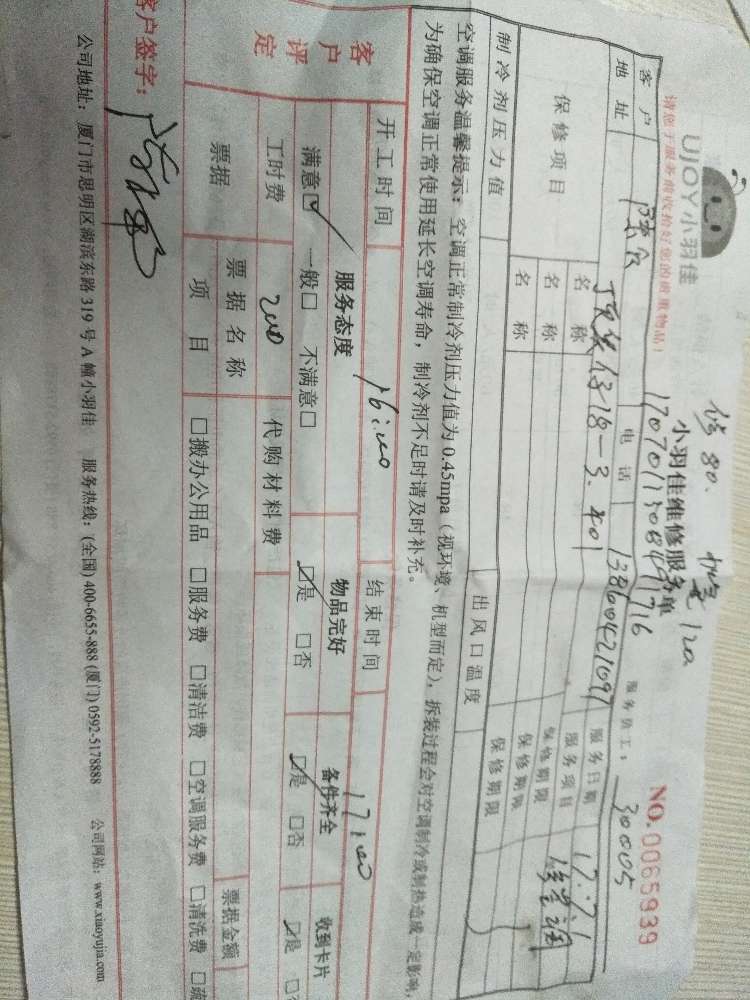 修80. 加氧120
UJOY小羽佳
小羽佳维修服务单
NO. 0065939
请您于服务前收拾好您的贵重物品！
服务员工：30005
客户 电话 13860421097 服务日期 17.7.1
地址 服务项目 修空调
保修项目 名称 保修期限
名称 保修期限
名称 保修期限
制冷剂压力值 出风口温度
空调服务温馨提示：空调正常制冷剂压力值为0.45mpa（视环境、机型而定），拆装过程会对空调制冷或制热造成一定影响，
为确保空调正常使用延长空调寿命，制冷剂不足时请及时补充。
开工时间 16:00 结束时间 17:00
客户评定 服务态度 物品完好 备件齐全 收到卡片
满意☑ 一般□ 不满意□ ☑是 □否 ☑是 □否 ☑是
工时费 200 代购材料费
票据 票据名称 票据金额
项目 □搬办公用品 □服务费 □清洁费 □空调服务费 □清洗费
客户签字：
公司地址：厦门市思明区湖滨东路319号A幢小羽佳 服务热线：(全国) 400-6655-888 (厦门) 0592-5178888 公司网站：www.xiaoyujia.com